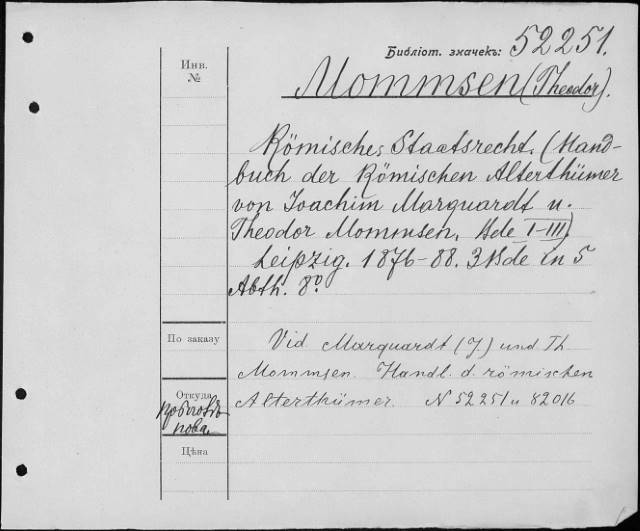 Библіот. значекъ: 52251.
Инв.
№
Mommsen (Theodor).
Römisches Staatsrecht. (Hand-
buch der Römischen Alterthümer
von Joachim Marquardt u.
Theodor Mommsen. Bde I-III)
Leipzig. 1876-88. 3 Bde in 5
Abth. 8º.
По заказу
Vid Marquardt (J.) und Th
Mommsen. Handl. d. römischen
Alterthümer. N 52251 u 82016
Откуда
Цѣна